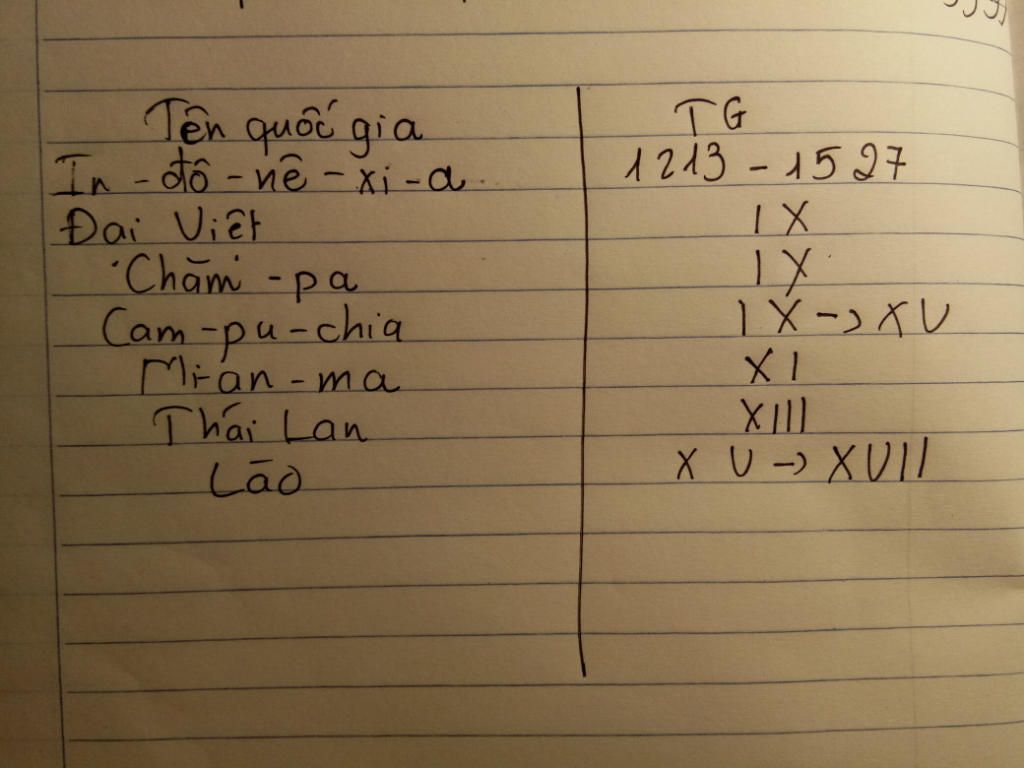 Tên quốc gia TG
In-đô-nê-xi-a 1213-1527
Đại Việt IX
Chăm-pa IX
Cam-pu-chia IX->XV
Mi-an-ma XI
Thái Lan XIII
Lào XV->XVII